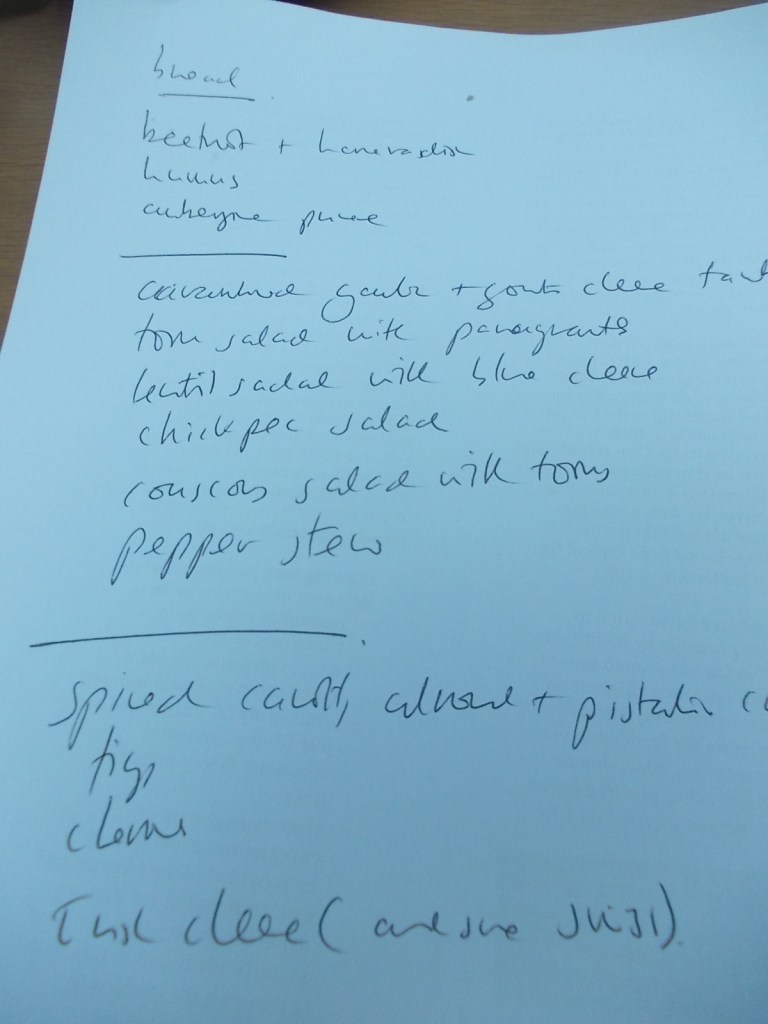 bread
beetroot + horseradish
humus
aubergine puree
caramelised garlic + goats cheese
tom salad with
lentil salad with blue cheese
chickpea salad
couscous salad with toms
pepper stew
spiced carrot, almond + pistachio
figs
cheese
cheese (and some